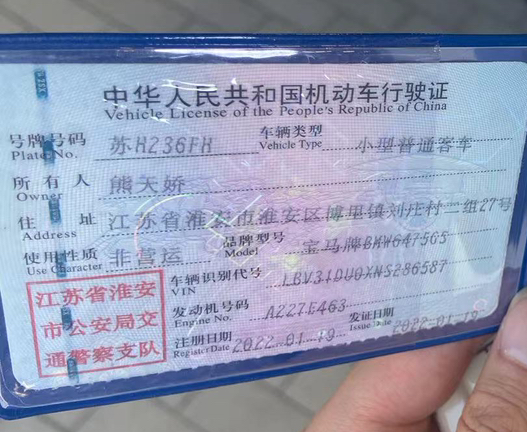 中华人民共和国机动车行驶证
Vehicle License of the People's Republic of China
号牌号码 苏H236FH 车辆类型 小型普通客车
Plate No. Vehicle Type
所有人 熊天娇
Owner
住址 江苏省淮安市淮安区博里镇刘庄村二组27号
Address
使用性质 非营运 品牌型号 宝马牌BMW6475GS
Use Character Model
车辆识别代号 LBV31DU0XNS286587
VIN
发动机号码 A227E463
Engine No.
注册日期 2022-01-19 发证日期 2022-01-19
Register Date Issue Date
江苏省淮安
市公安局交
通警察支队